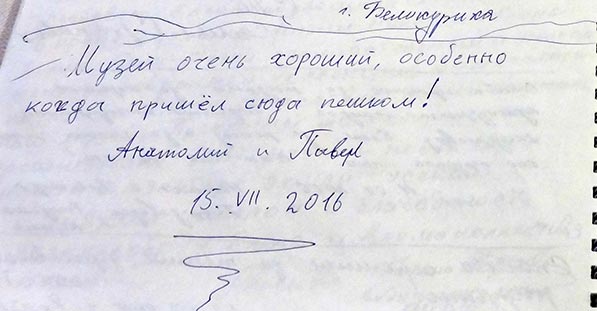 г. Белокуриха
Музей очень хороший, особенно
когда пришёл сюда пешком!
Анатолий и Павел
15. VII. 2016